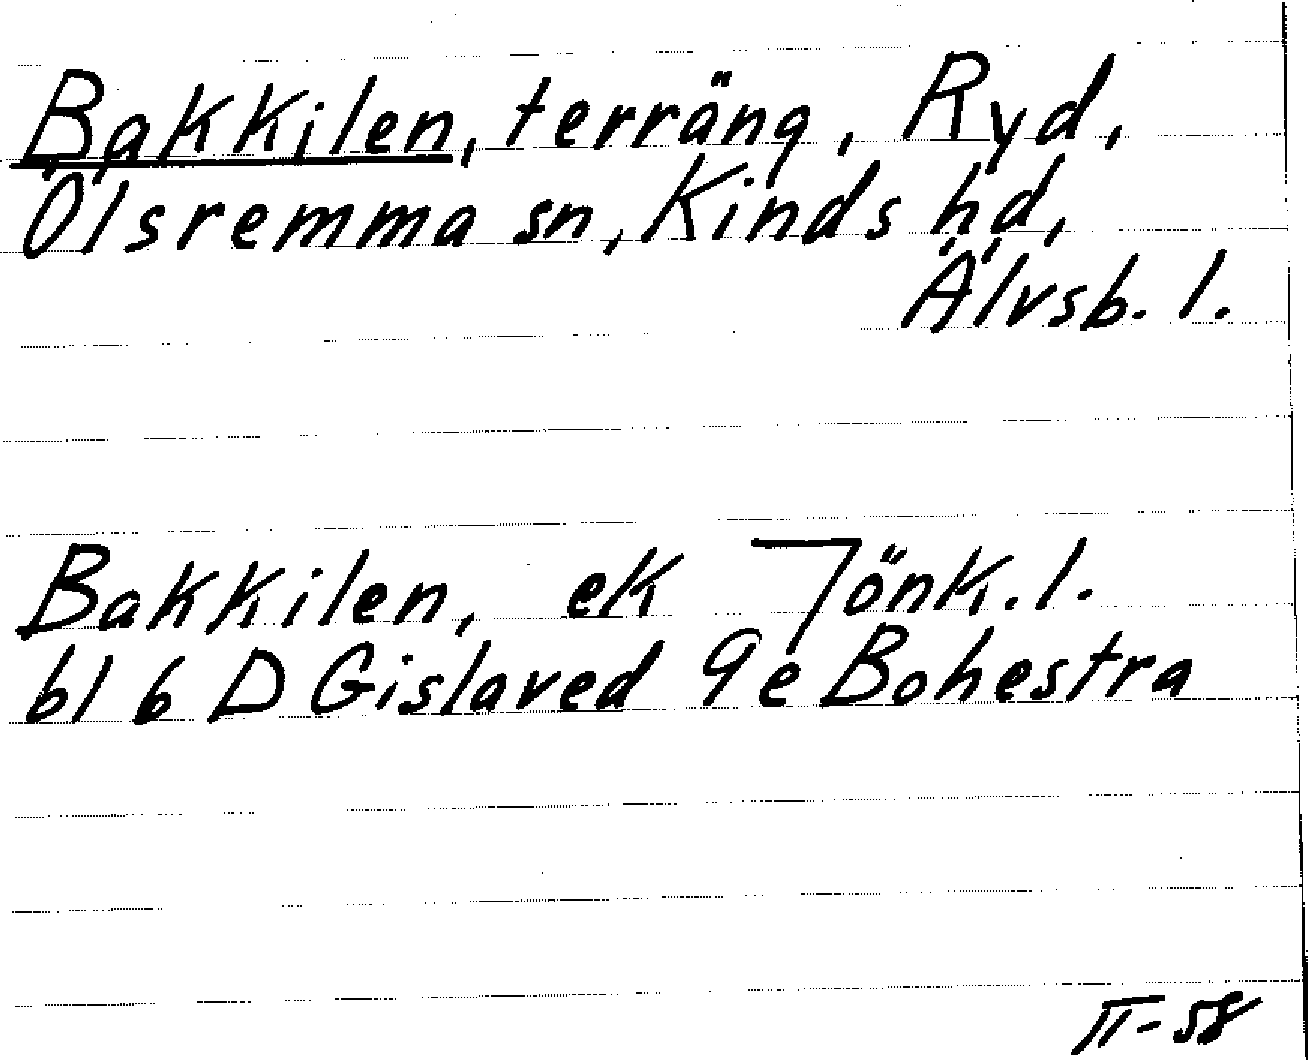 Bakkilen, terräng, Ryd,
Ölsremma sn, Kinds hd,
Älvsb. l.
Bakkilen, ek Jönk. l.
bl 6 D Gislaved 9e Bohestra
II-58